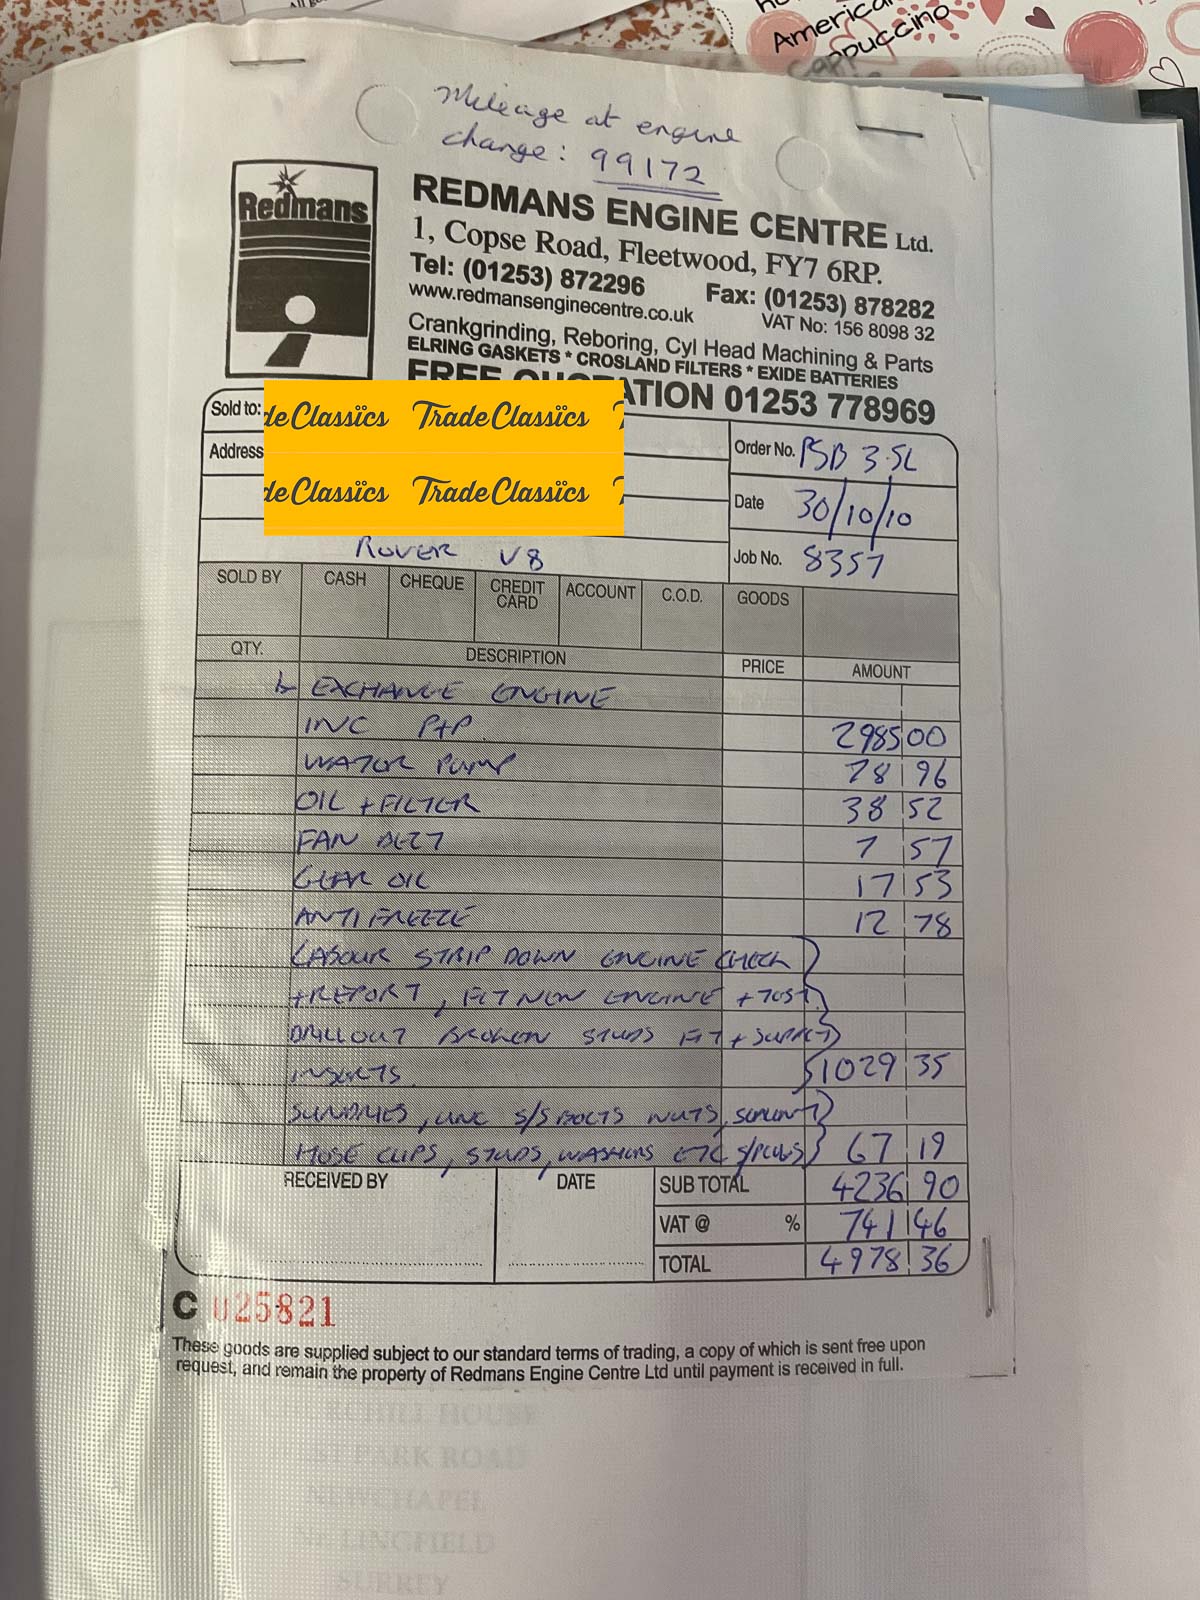 America
Cappuccino
Mileage at engine
change: 99172
Redmans
REDMANS ENGINE CENTRE Ltd.
1, Copse Road, Fleetwood, FY7 6RP.
Tel: (01253) 872296 Fax: (01253) 878282
www.redmansenginecentre.co.uk VAT No: 156 8098 32
Crankgrinding, Reboring, Cyl Head Machining & Parts
ELRING GASKETS * CROSLAND FILTERS * EXIDE BATTERIES
FREE QUOTATION 01253 778969
Sold to:
deClassics TradeClassics T
Address
deClassics TradeClassics T
Order No. PSB 35L
Date 30/10/10
ROVER V8
Job No. 8357
SOLD BY CASH CHEQUE CREDIT CARD ACCOUNT C.O.D. GOODS
QTY. DESCRIPTION PRICE AMOUNT
1 EXCHANGE ENGINE
INC P+P 2985 00
WATER PUMP 78 96
OIL + FILTER 38 52
FAN BELT 7 57
GEAR OIL 17 53
ANTIFREEZE 12 78
LABOUR STRIP DOWN ENGINE CHECK
+ REPORT, FIT NEW ENGINE + TEST
DRILL OUT BROKEN STUDS FIT + SUPPLY
INSERTS 1029 35
SUNDRIES, INC S/S BOLTS NUTS,
HOSE CLIPS, STUDS, WASHERS ETC S/PLUGS 67 19
RECEIVED BY DATE SUB TOTAL 4236 90
VAT @ % 741 46
TOTAL 4978 36
C 025821
These goods are supplied subject to our standard terms of trading, a copy of which is sent free upon
request, and remain the property of Redmans Engine Centre Ltd until payment is received in full.
HOUSE
PARK ROAD
NEWCHAPEL
LINGFIELD
SURREY